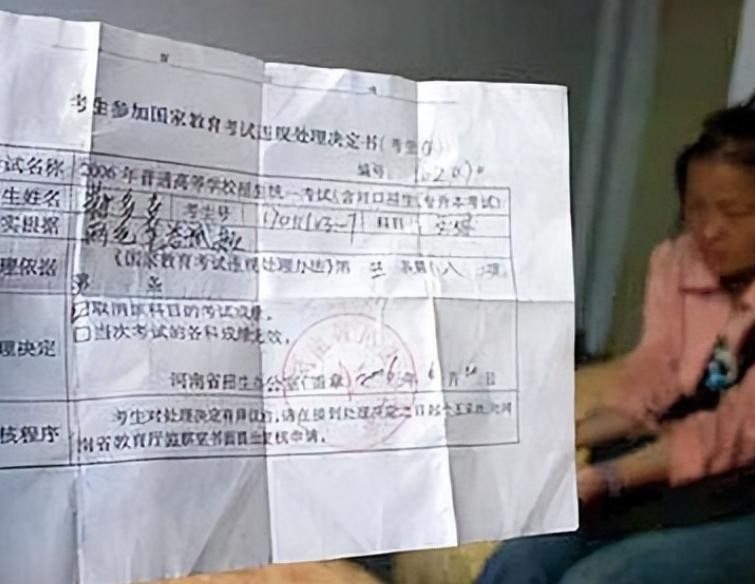 考生参加国家教育考试违规处理决定书(考生
编号
试名称 2006年普通高等学校招生统一考试(含对口招生、专升本考试)
生姓名 蒋多多 考生号 科目 文综
实根据 两色笔答试卷
理依据 《国家教育考试违规处理办法》第 五 条第(八)项。
第 条
理决定 取消该科目的考试成绩。
当次考试的各科成绩无效。
河南省招生办公室(盖章) 2006年 6月 日
核程序 考生对处理决定有异议的,请在接到处理决定之日起
南省教育厅监察室书面提出复核申请。